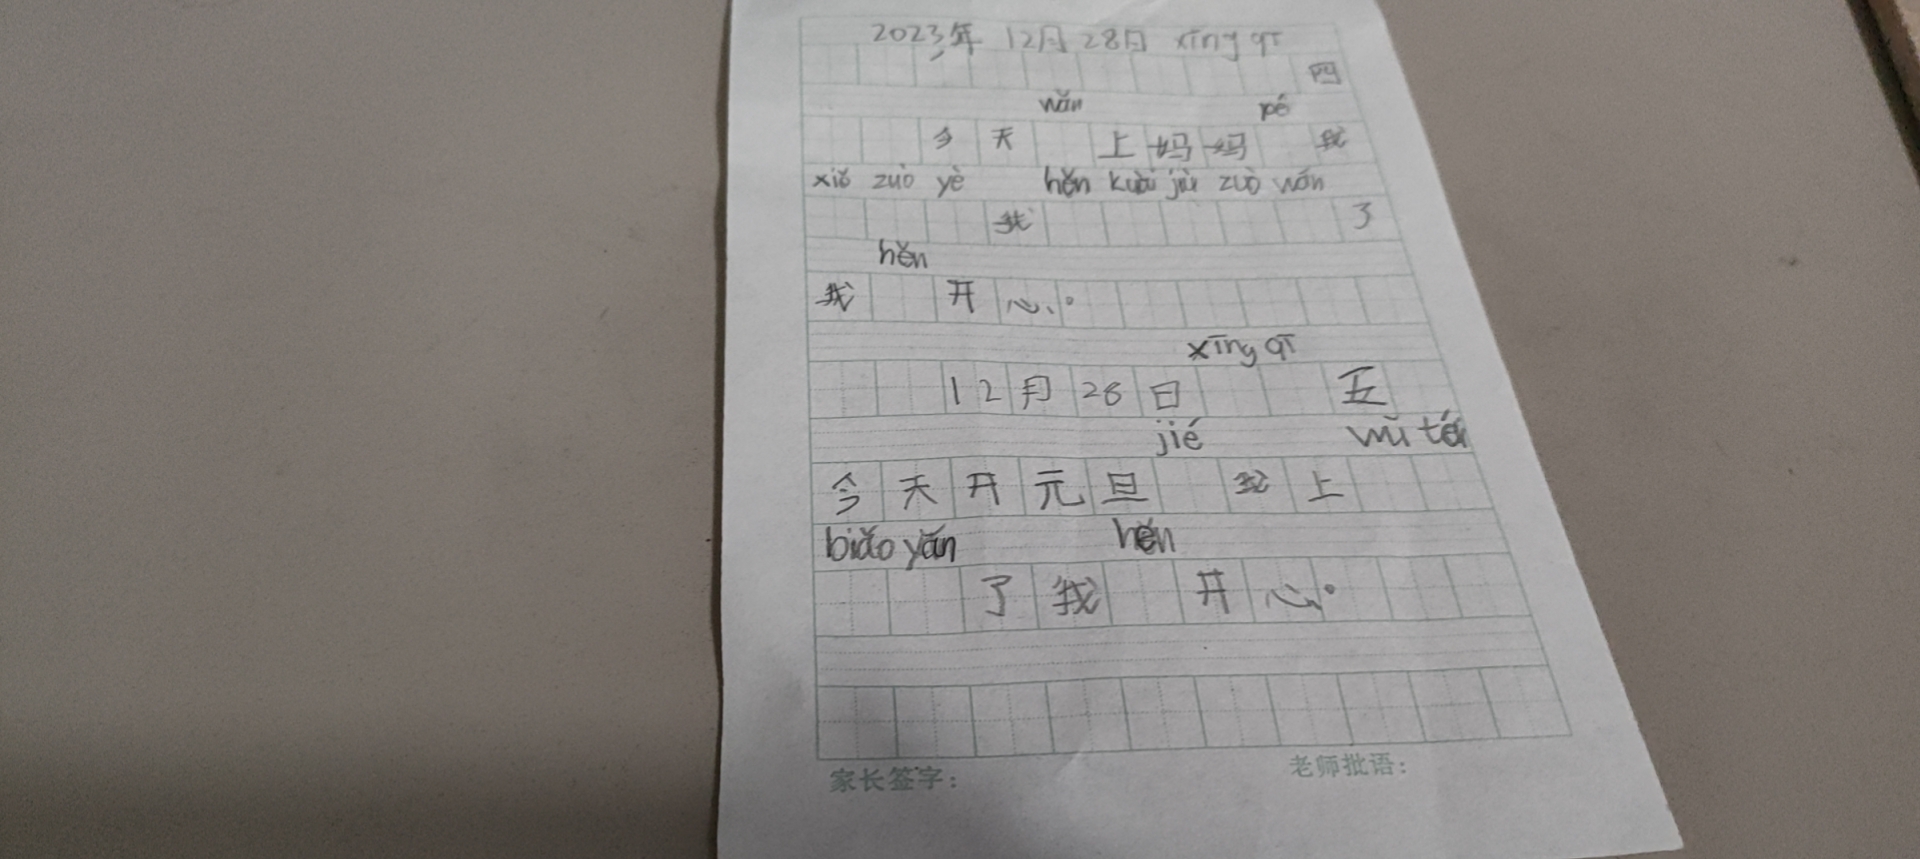 2023年 12月 28日 xīng qī
四
wǎn pé
今天 上妈妈 我
xiě zuò yè hěn kuài jiù zuò wán
我 了
hěn
我 开心。
xīng qī
12月28日 五
jié wǔ tái
今天开元旦 我上
biǎo yǎn hěn
了我 开心。
家长签字: 老师批语: